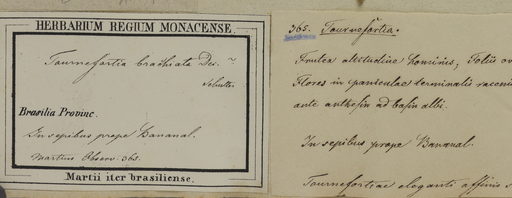 HERBARIUM REGIUM MONACENSE.
Tournefortia brachiata Dec. ~
Brasilia Provinc.
In sepibus prope Bananal.
Martius Observ. 365.
Martii iter brasiliense.
365. Tournefortia.
Frutex altitudine hominis; Foliis
Flores in paniculae terminalis
ante anthesin ad basin albi.
In sepibus prope Bananal.
Tournefortiae eleganti affinis